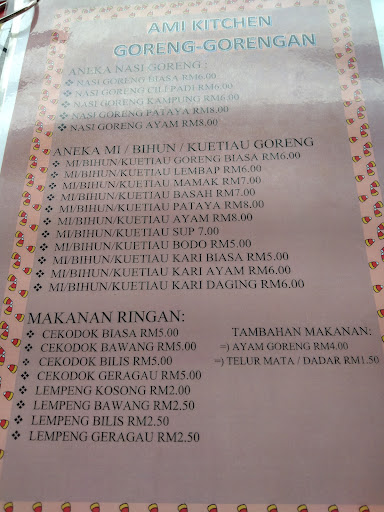 AMI KITCHEN
GORENG-GORENGAN
ANEKA NASI GORENG :
❖ NASI GORENG BIASA RM6.00
❖ NASI GORENG CILI PADI RM6.00
❖ NASI GORENG KAMPUNG RM6.00
❖ NASI GORENG PATAYA RM8.00
❖ NASI GORENG AYAM RM8.00
ANEKA MI / BIHUN / KUETIAU GORENG
❖ MI/BIHUN/KUETIAU GORENG BIASA RM6.00
❖ MI/BIHUN/KUETIAU LEMBAP RM6.00
❖ MI/BIHUN/KUETIAU MAMAK RM7.00
❖ MI/BIHUN/KUETIAU BASAH RM7.00
❖ MI/BIHUN/KUETIAU PATAYA RM8.00
❖ MI/BIHUN/KUETIAU AYAM RM8.00
❖ MI/BIHUN/KUETIAU SUP 7.00
❖ MI/BIHUN/KUETIAU BODO RM5.00
❖ MI/BIHUN/KUETIAU KARI BIASA RM5.00
❖ MI/BIHUN/KUETIAU KARI AYAM RM6.00
❖ MI/BIHUN/KUETIAU KARI DAGING RM6.00
MAKANAN RINGAN:
❖ CEKODOK BIASA RM5.00
❖ CEKODOK BAWANG RM5.00
❖ CEKODOK BILIS RM5.00
❖ CEKODOK GERAGAU RM5.00
❖ LEMPENG KOSONG RM2.00
❖ LEMPENG BAWANG RM2.50
❖ LEMPENG BILIS RM2.50
❖ LEMPENG GERAGAU RM2.50
TAMBAHAN MAKANAN:
=) AYAM GORENG RM4.00
=) TELUR MATA / DADAR RM1.50